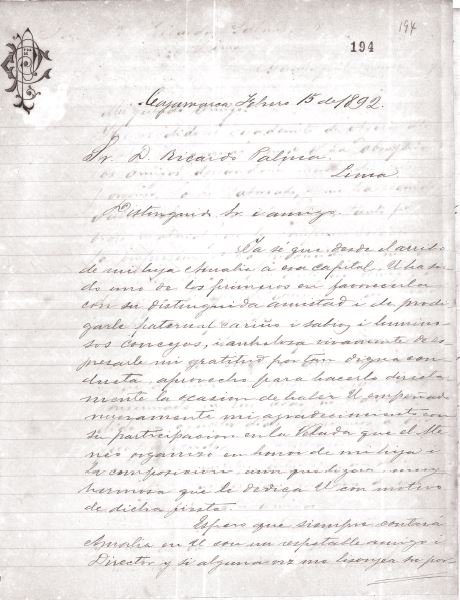 194
194
Cajamarca Febrero 15 de 1892.
Sr. D. Ricardo Palma.
Lima
Distinguido Sr. i amigo.
Ya sé que desde el arribo
de mi hija Amalia á esa capital, U ha si
do uno de los primeros en favorecerla
con su distinguida amistad i de prodi
garle paternal cariño i sabios i lumino
sos consejos, i anhelosa vivamente de es
presarle mi gratitud por tan digna con
ducta, aprovecho para hacerlo directa
mente la ocasion de haber U empeñado
nuevamente mi agradecimiento con
su participacion en la Velada que el Ate
neo organizó en honor de mi hija i
la composicion, aun que lijera, muy
hermosa que le dedica U con motivo
de dicha fiesta.
Espero que siempre contará
Amalia en U con un respetable amigo i
Director y si alguna vez me lisonjea su por-